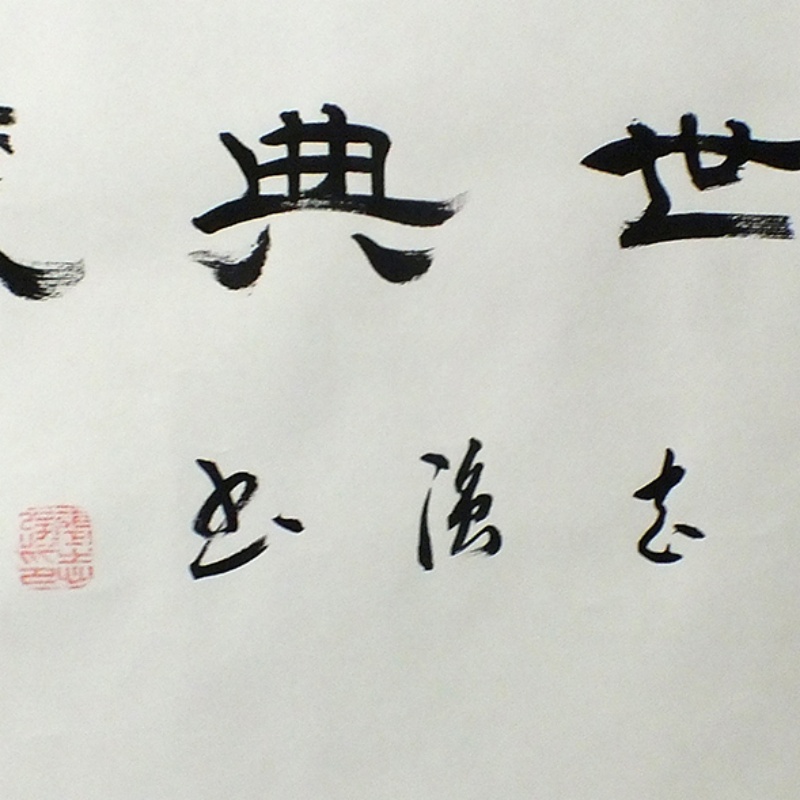 世典
志强书